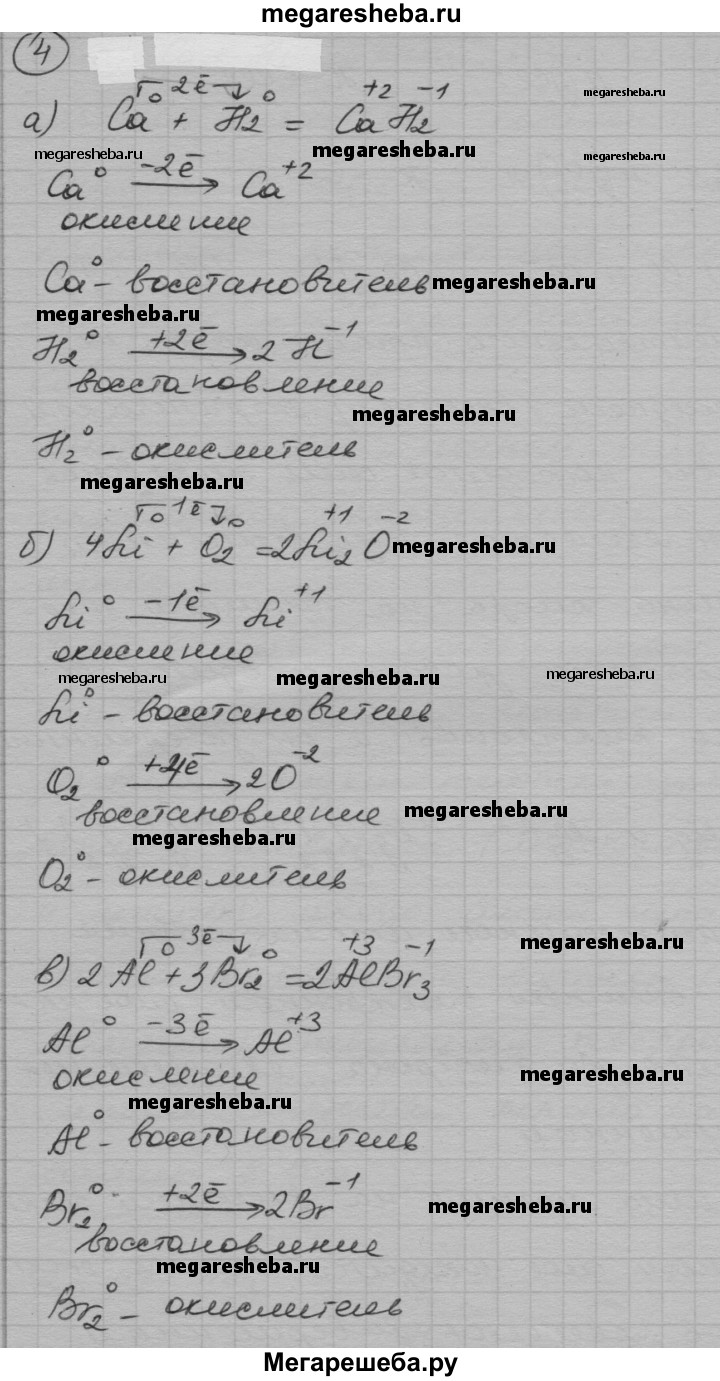 megaresheba.ru
4
2ē
а) Ca⁰ + H₂⁰ = Ca⁺²H₂⁻¹
megaresheba.ru
megaresheba.ru megaresheba.ru megaresheba.ru
Ca⁰ –2ē → Ca⁺²
окисление
Ca⁰ – восстановитель megaresheba.ru
megaresheba.ru
H₂⁰ +2ē → 2H⁻¹
восстановление
megaresheba.ru
H₂⁰ – окислитель
megaresheba.ru
1ē
б) 4Li⁰ + O₂⁰ = 2Li₂⁺¹O⁻² megaresheba.ru
Li⁰ –1ē → Li⁺¹
окисление
megaresheba.ru megaresheba.ru megaresheba.ru
Li⁰ – восстановитель
O₂⁰ +4ē → 2O⁻²
восстановление megaresheba.ru
megaresheba.ru
O₂⁰ – окислитель
3ē
megaresheba.ru
в) 2Al⁰ + 3Br₂⁰ = 2Al⁺³Br₃⁻¹
Al⁰ –3ē → Al⁺³
окисление megaresheba.ru
megaresheba.ru
Al⁰ – восстановитель
Br₂⁰ +2ē → 2Br⁻¹ megaresheba.ru
восстановление
megaresheba.ru
Br₂⁰ – окислитель
Мегарешеба.ру